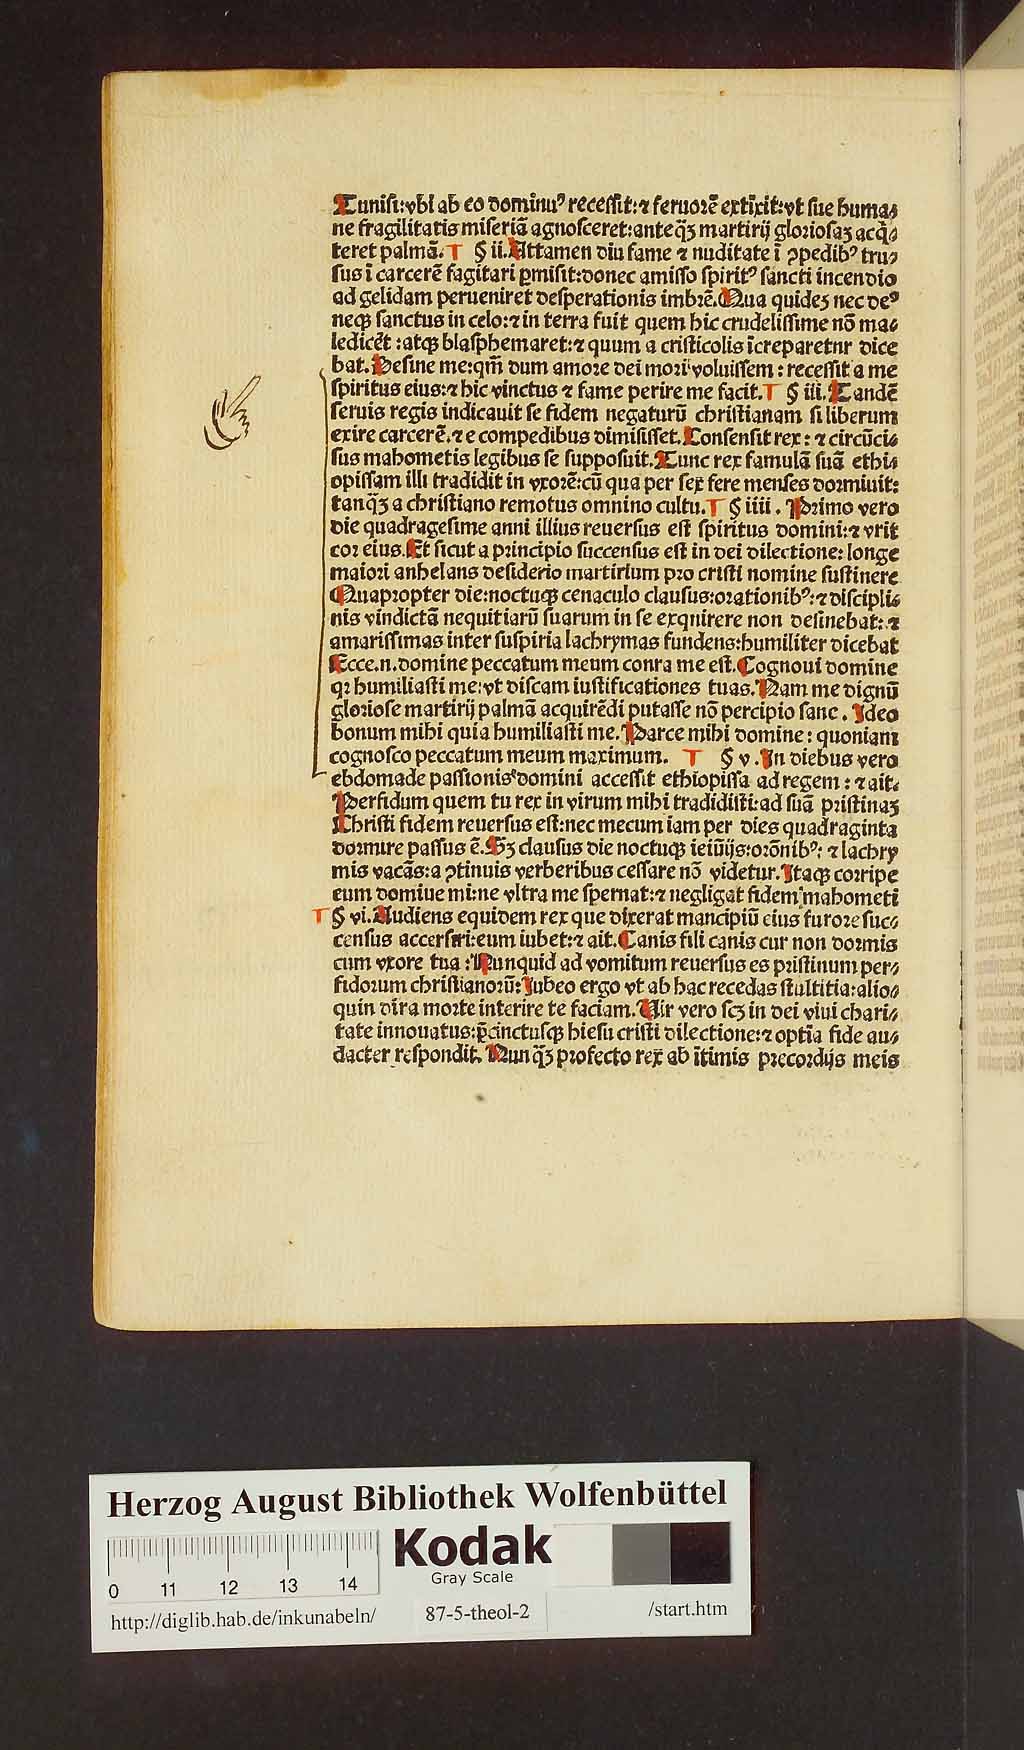 Tunisi: vbi ab eo dominuꝰ recessit: ⁊ feruorē extīxit: vt sue huma⸗
ne fragilitatis miseriā agnosceret: anteq̄ꝫ martirij gloriosaꝫ acq̄⸗
teret palmā. § ii. Attamen diu fame ⁊ nuditate ī ꝯpedibꝰ tru⸗
sus ī carcerē fagitari ꝑmisit: donec amisso spiritꝰ sancti incendio
ad gelidam perueniret desperationis imbrē. Qua quideꝫ nec deꝰ
neqꝫ sanctus in celo: ⁊ in terra fuit quem hic crudelissime nō ma⸗
ledicēt : atqꝫ blasphemaret: ⁊ quum a cristicolis īcreparetnr dice
bat. Desine me: qm̄ dum amore dei mori voluissem : recessit a me
spiritus eius: ⁊ hic vinctus ⁊ fame perire me facit. § iii. Tandē
seruis regis indicauit se fidem negaturū christianam si liberum
exire carcerē. ⁊ e compedibus dimisisset. Consensit rex : ⁊ circūci⸗
sus mahometis legibus se supposuit. Tunc rex famulā suā ethi⸗
opissam illi tradidit in vxorē: cū qua per sex fere menses dormiuit:
tanq̄ꝫ a christiano remotus omnino cultu. § iiii . Primo vero
die quadragesime anni illius reuersus est spiritus domini: ⁊ vrit
cor eius. Et sicut a principio succensus est in dei dilectione: longe
maiori anhelans desiderio martirium pro cristi nomine sustinere
Quapropter die: noctuqꝫ cenaculo clausus: orationibꝰ: ⁊ discipli⸗
nis vindictā nequitiarū suarum in se exquirere non desinebat: ⁊
amarissimas inter suspiria lachrymas fundens: humiliter dicebat
Ecce.n. domine peccatum meum conra me est. Cognoui domine
qꝛ humiliasti me: vt discam iustificationes tuas. Nam me dignū
gloriose martirij palmā acquirēdi putasse nō percipio sane . Ideo
bonum mihi quia humiliasti me. Parce mihi domine : quoniam
cognosco peccatum meum maximum. § v . In diebus vero
ebdomade passionis domini accessit ethiopissa ad regem : ⁊ ait.
Perfidum quem tu rex in virum mihi tradidisti: ad suā pristinaꝫ
Christi fidem reuersus est: nec mecum iam per dies quadraginta
dormire passus ē. Sꝫ clausus die noctuqꝫ ieiūijs: orōnibꝰ: ⁊ lachry
mis vacās: a ꝯtinuis verberibus cessare nō videtur. Itaqꝫ corripe
eum domiue mi: ne vltra me spernat: ⁊ negligat fidem mahometi
§ vi. Audiens equidem rex que dixerat mancipiū eius furore suc⸗
census accersiri: eum iubet: ⁊ ait. Canis fili canis cur non dormis
cum vxore tua : Nunquid ad vomitum reuersus es pristinum per⸗
fidorum christianorū: Jubeo ergo vt ab hac recedas stultitia: alio⸗
quin dira morte interire te faciam. Uir vero scꝫ in dei viui chari⸗
tate innouatus: p̄cinctusqꝫ hiesu cristi dilectione: ⁊ optīa fide au⸗
dacter respondit. Nun q̄ꝫ profecto rex ab ītimis precordijs meis
Herzog August Bibliothek Wolfenbüttel
0 11 12 13 14
Kodak
Gray Scale
http://diglib.hab.de/inkunabeln/
87-5-theol-2
/start.htm